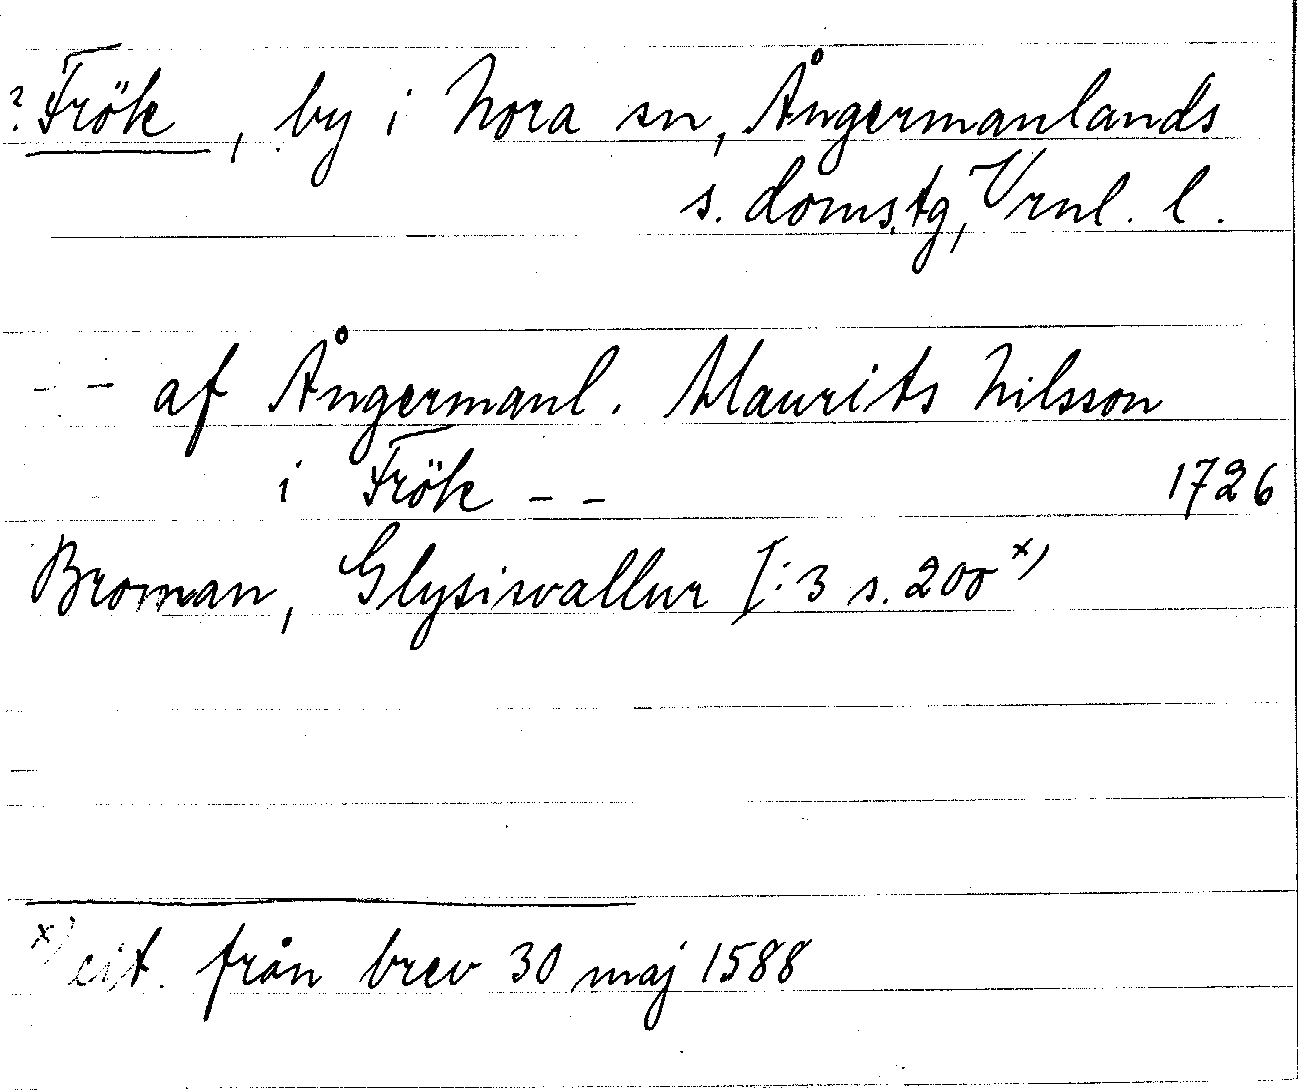 ? Frök, by i Nora sn, Ångermanlands
s. doms.tg, Vrnl. l.
- - af Ångermanl. Maurits Nilsson
i Frök - - 1726
Broman, Glysisvallur I:3 s. 200 x)
x) cit. från brev 30 maj 1588